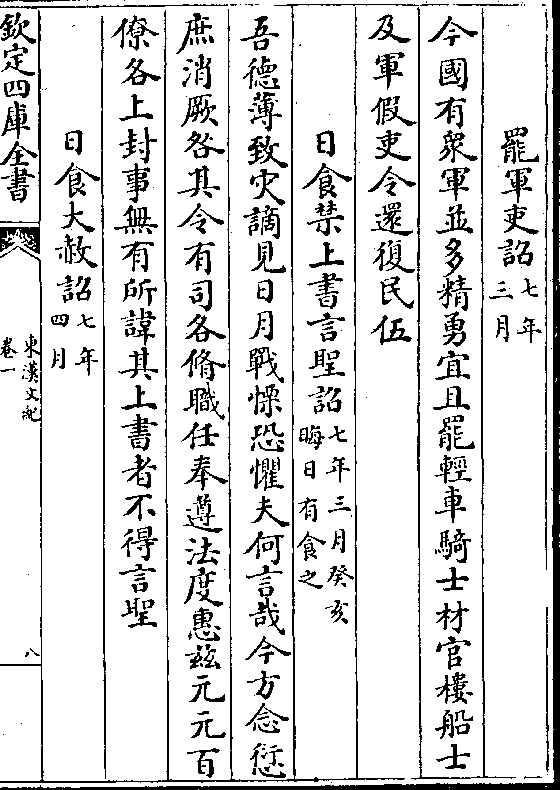 罷軍吏詔七年三月
今國有衆軍並多精勇宜且罷輕車騎士材官樓船士
及軍假吏令還復民伍
日食禁上書言聖詔七年三月癸亥晦日有食之
吾德薄致災謫見日月戰慄恐懼夫何言哉今方念愆
庶消厥咎其令有司各脩職任奉遵法度惠茲元元百
僚各上封事無有所諱其上書者不得言聖
日食大赦詔七年四月
欽定四庫全書
東漢文紀
卷一
八